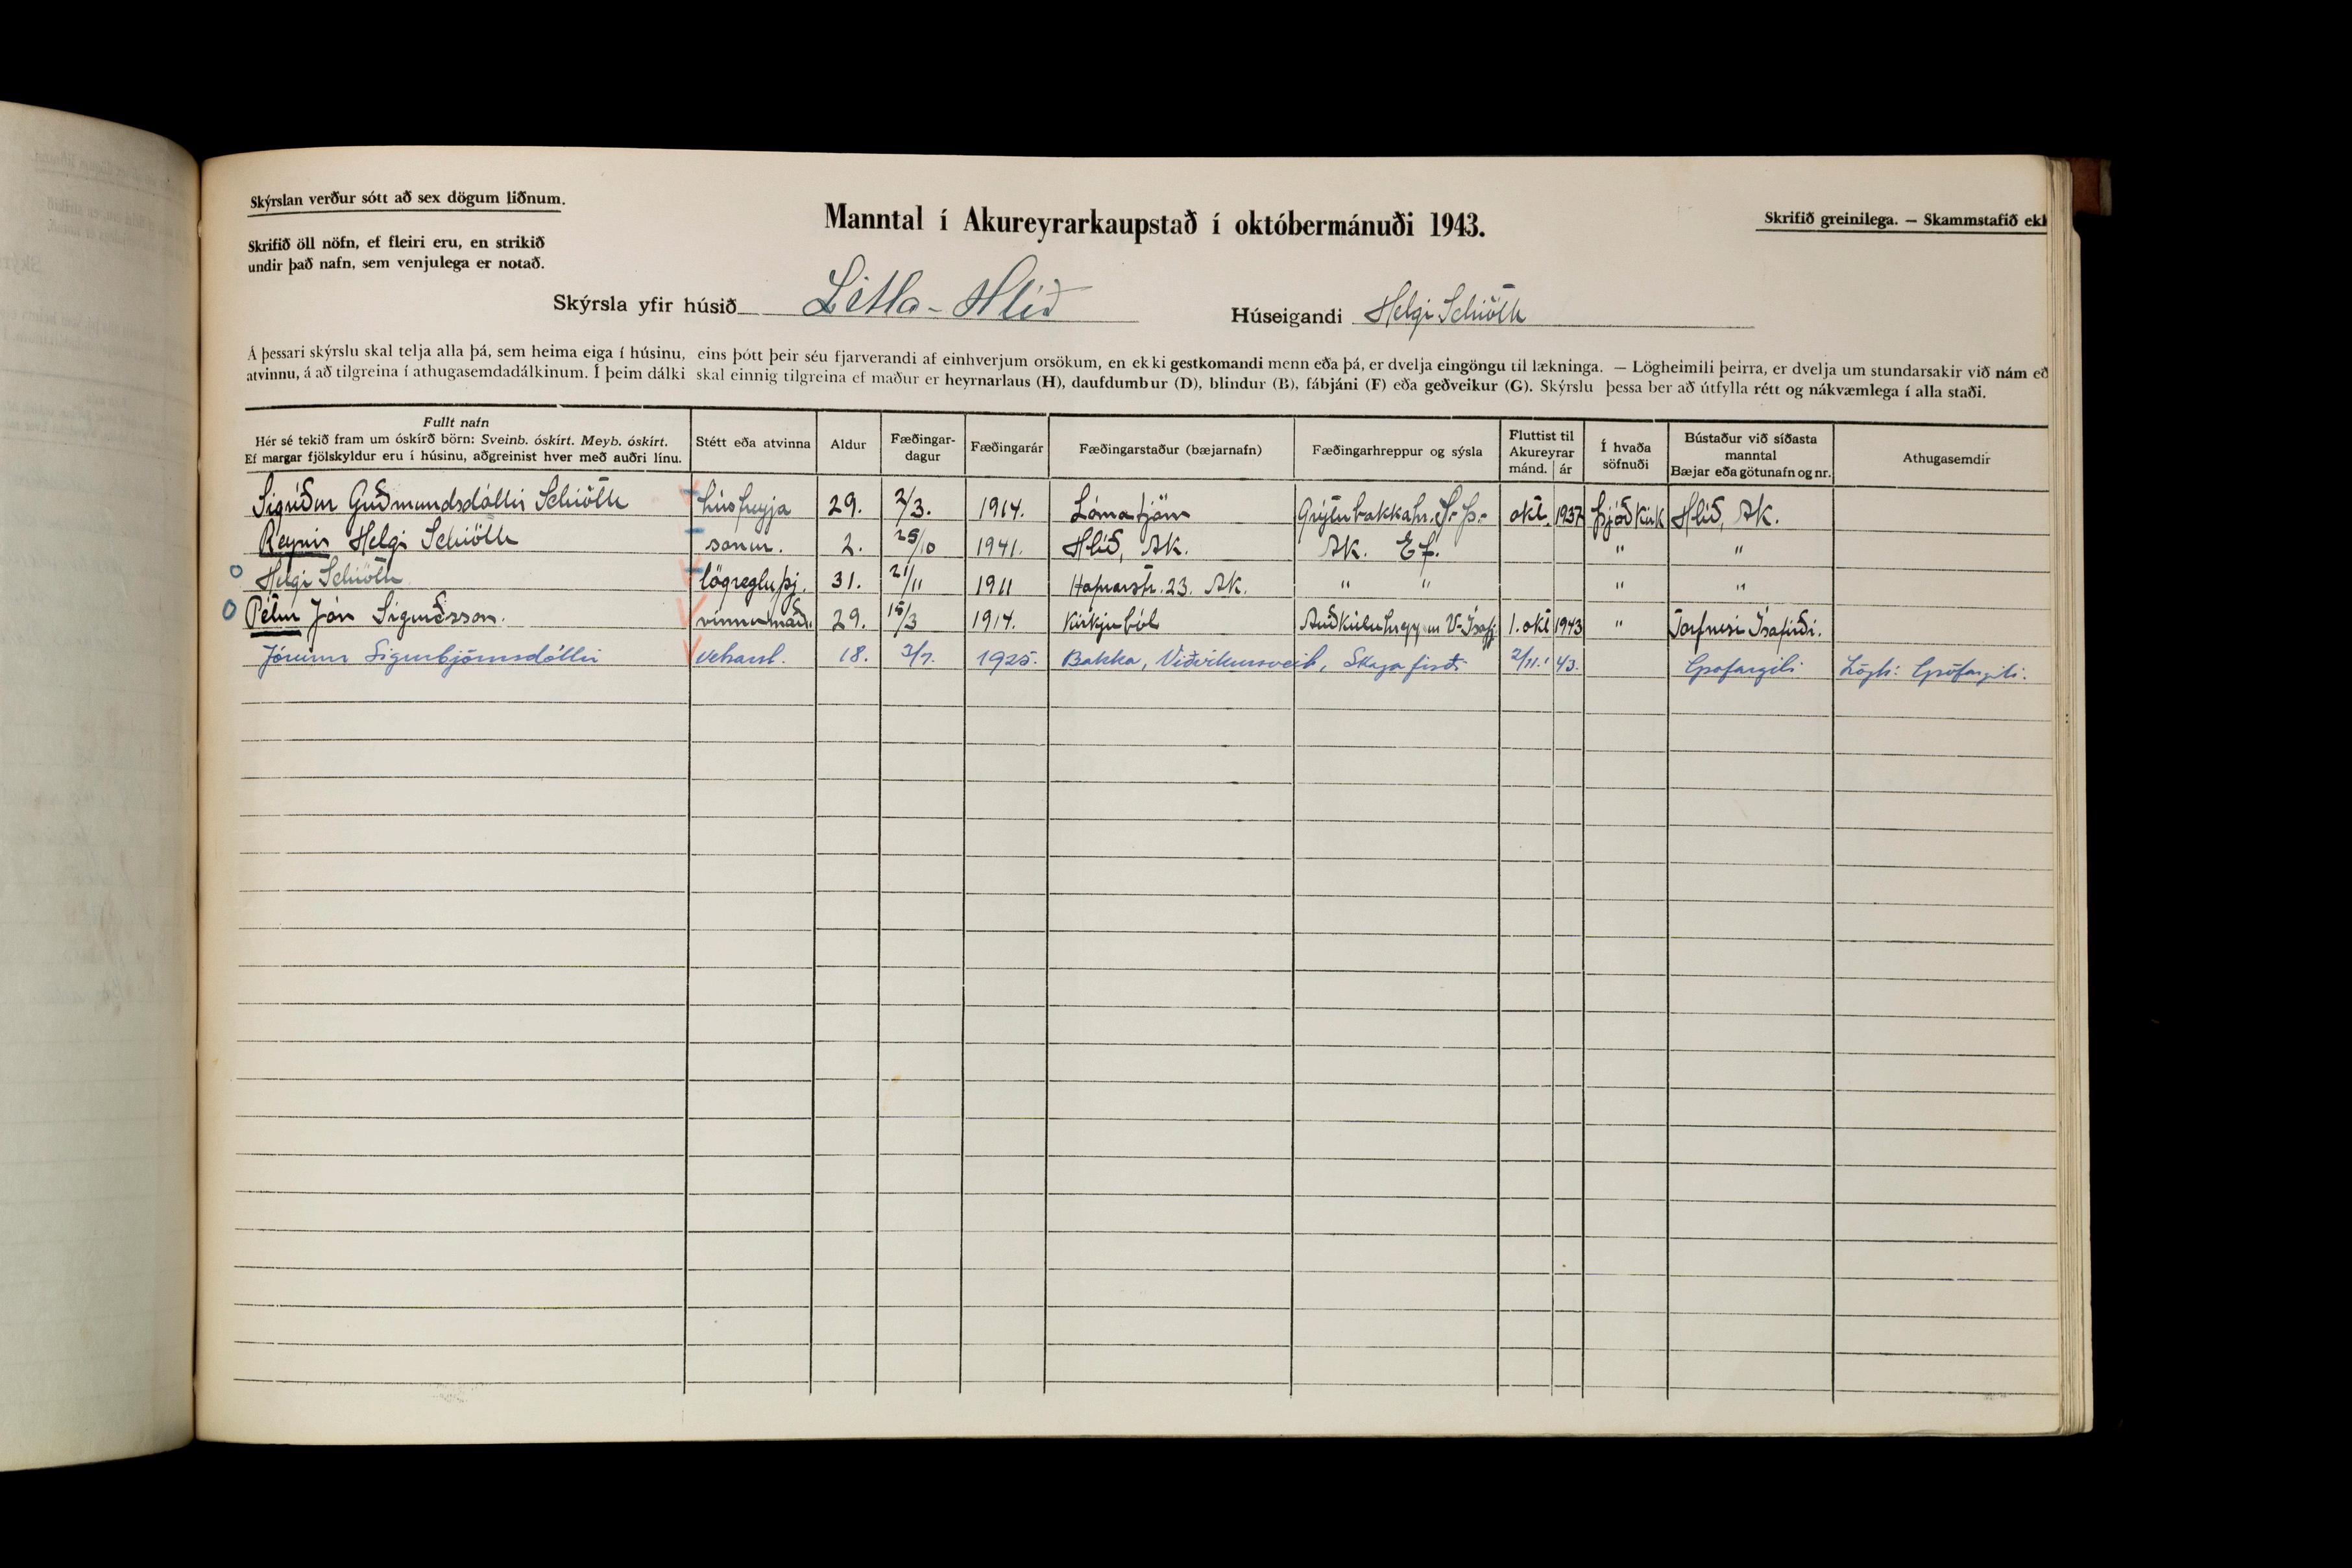 Skýrslan verður sótt að sex dögum liðnum.
Skrifið öll nöfn, ef fleiri eru, en strikið
undir það nafn, sem venjulega er notað.
Manntal í Akureyrarkaupstað í októbermánuði 1943.
Skrifið greinilega. — Skammstafið ekk
Skýrsla yfir húsið Litla-Hlíð
Húseigandi Helgi Schiöth
Á þessari skýrslu skal telja alla þá, sem heima eiga í húsinu, eins þótt þeir séu fjarverandi af einhverjum orsökum, en ekki gestkomandi menn eða þá, er dvelja eingöngu til lækninga. — Lögheimili þeirra, er dvelja um stundarsakir við nám eð
atvinnu, á að tilgreina í athugasemdadálkinum. Í þeim dálki skal einnig tilgreina ef maður er heyrnarlaus (H), daufdumbur (D), blindur (B), fábjáni (F) eða geðveikur (G). Skýrslu þessa ber að útfylla rétt og nákvæmlega í alla staði.
Fullt nafn
Hér sé tekið fram um óskírð börn: Sveinb. óskírt. Meyb. óskírt.
Ef margar fjölskyldur eru í húsinu, aðgreinist hver með auðri línu.
Stétt eða atvinna
Aldur
Fæðingar-
dagur
Fæðingarár
Fæðingarstaður (bæjarnafn)
Fæðingarhreppur og sýsla
Fluttist til
Akureyrar
mánd. ár
Í hvaða
söfnuði
Bústaður við síðasta
manntal
Bæjar eða götunafn og nr.
Athugasemdir
Sigríður Guðmundsdóttir Schiöth húsfreyja 29. 2/3. 1914. Lómatjörn Grýtubakkahr. S-Þ. okt. 1937 Þjóðkirk Hlíð, Ak.
Reynir Helgi Schiöth sonur. 2. 25/10 1941. Hlíð, Ak. Ak. Ef. " "
Helgi Schiöth lögregluþj. 31. 21/11 1911 Hafnarstr. 23. Ak. " " " "
Pétur Jón Sigurðsson. vinnumaður 29. 15/3 1914. Kirkjuból Auðkúluhreppur V-Ísafj. 1. okt 1943 " Torfnesi Ísafirði.
Jórunn Sigurbjörnsdóttir vetrarst. 18. 3/7. 1925. Bakka, Viðvíkursveit, Skagafirði 2/11. 43. Grófargili Lögh: Grófargili.